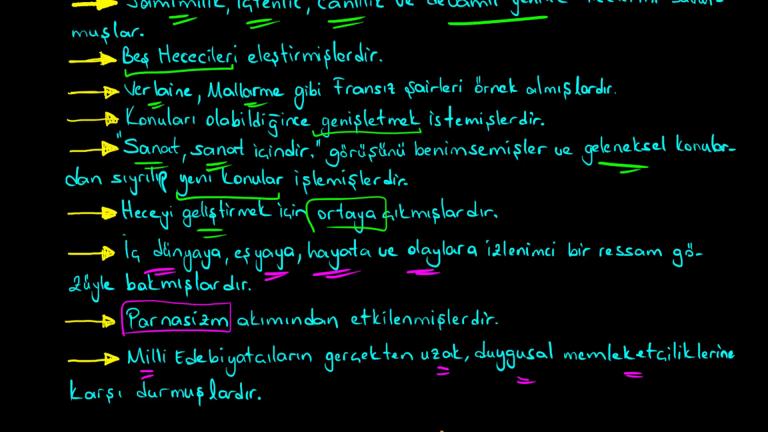 Samimilik, içtenlik, canlılık ve devamlı yenilik
muşlar.
Beş Hececileri eleştirmişlerdir.
Verlaine, Mallarme gibi Fransız şairleri örnek almışlardır.
Konuları olabildiğince genişletmek istemişlerdir.
"Sanat, sanat içindir." görüşünü benimsemişler ve geleneksel konular-
dan sıyrılıp yeni konular işlemişlerdir.
Heceyi geliştirmek için ortaya çıkmışlardır.
İç dünyaya, eşyaya, hayata ve olaylara izlenimci bir ressam gö-
züyle bakmışlardır.
Parnasizm akımından etkilenmişlerdir.
Milli Edebiyatcıların gerçekten uzak, duygusal memleketçiliklerine
karşı durmuşlardır.